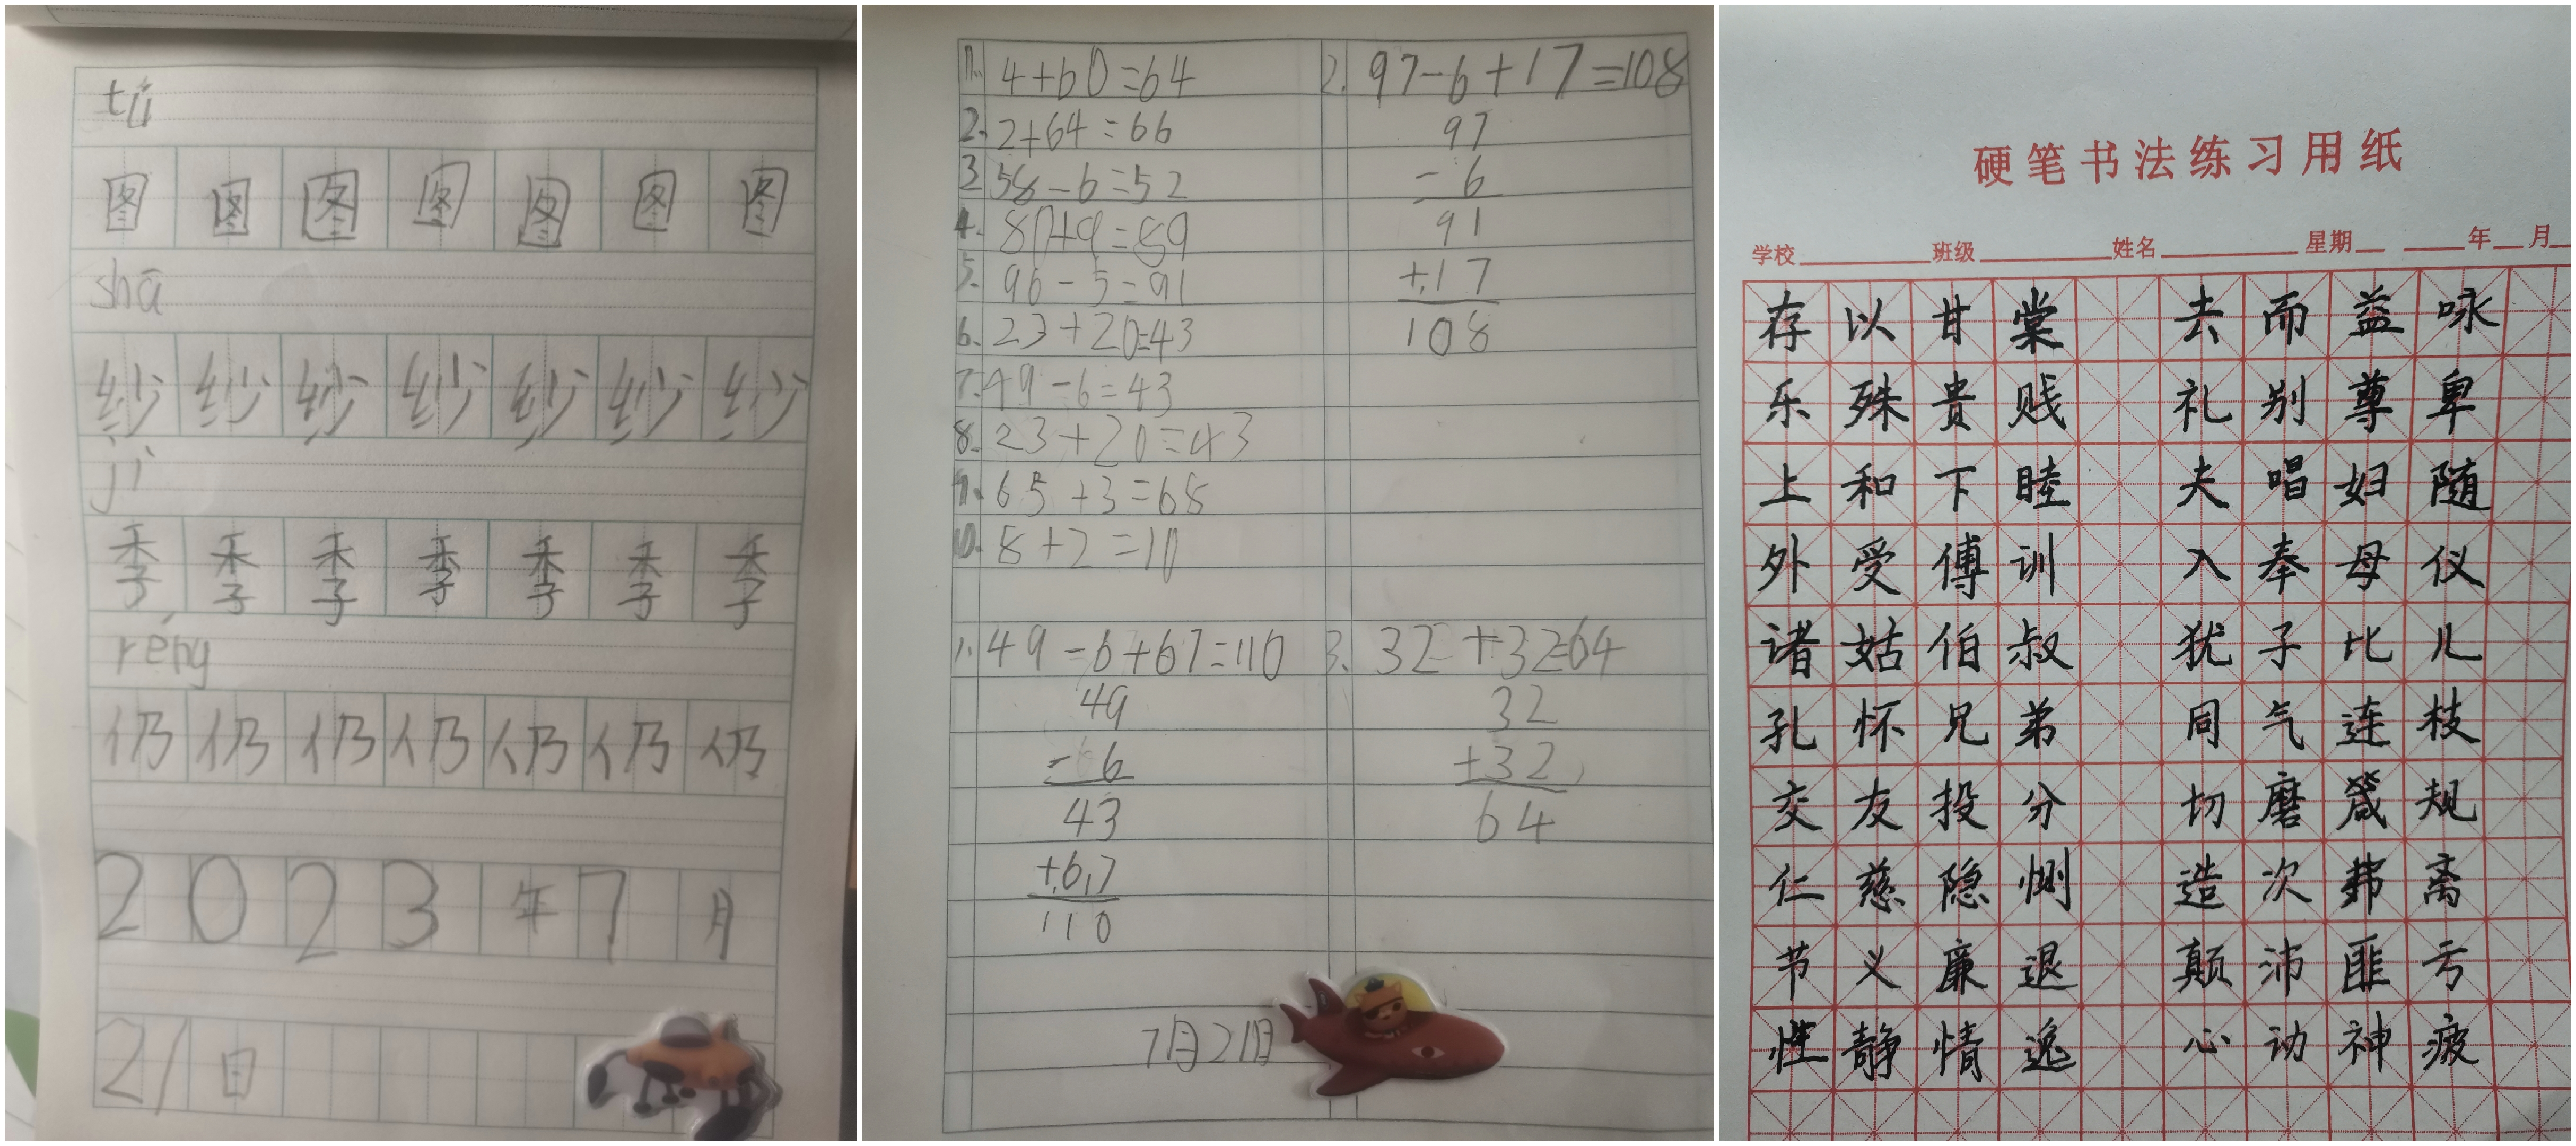 tú
图 图 图 图 图 图 图
shā
纱 纱 纱 纱 纱 纱 纱
jì
季 季 季 季 季 季 季
réng
仍 仍 仍 仍 仍 仍 仍
2 0 2 3 年 7 月
21 日
1. 4+60=64
2. 2+64=66
3 58-6=52
4. 80+9=89
5. 96-5=91
6. 23+20=43
7. 49-6=43
8. 23+20=43
9. 65+3=68
10. 8+2=10
2. 97-6+17=108
97
-6
91
+17
108
1. 49-6+67=110
49
-6
43
+67
110
3. 32+32=64
32
+32
64
7月21日
硬笔书法练习用纸
学校 班级 姓名 星期 年 月
存以甘棠 去而益咏
乐殊贵贱 礼别尊卑
上和下睦 夫唱妇随
外受傅训 入奉母仪
诸姑伯叔 犹子比儿
孔怀兄弟 同气连枝
交友投分 切磨箴规
仁慈隐恻 造次弗离
节义廉退 颠沛匪亏
性静情逸 心动神疲